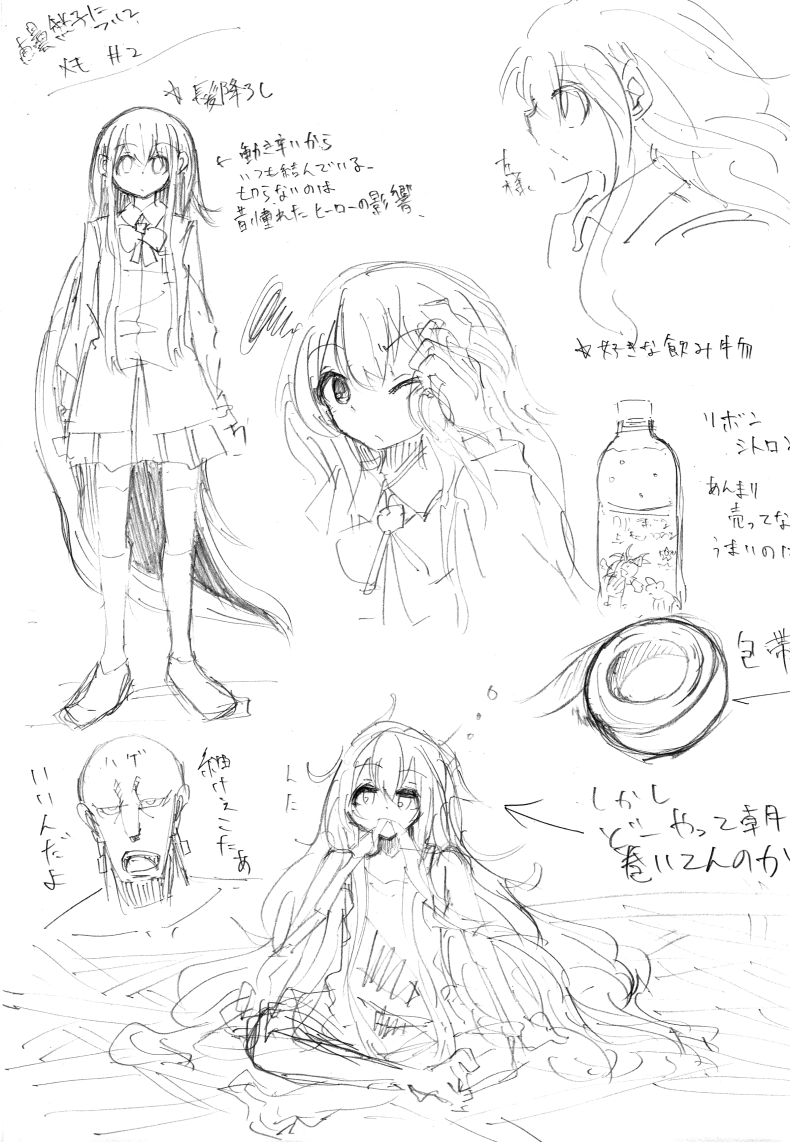 #2
☆髪降ろし
← 動き辛いから
いつも結んでいる。
切らないのは
昔憧れたヒーローの影響。
☆好きな飲み物
リボン
シトロン
あんまり
売ってな
うまいのに
包帯
ハゲ
細けぇこたあ
いいんだよ
んだ
しかし
どーやって朝
巻いてんのか